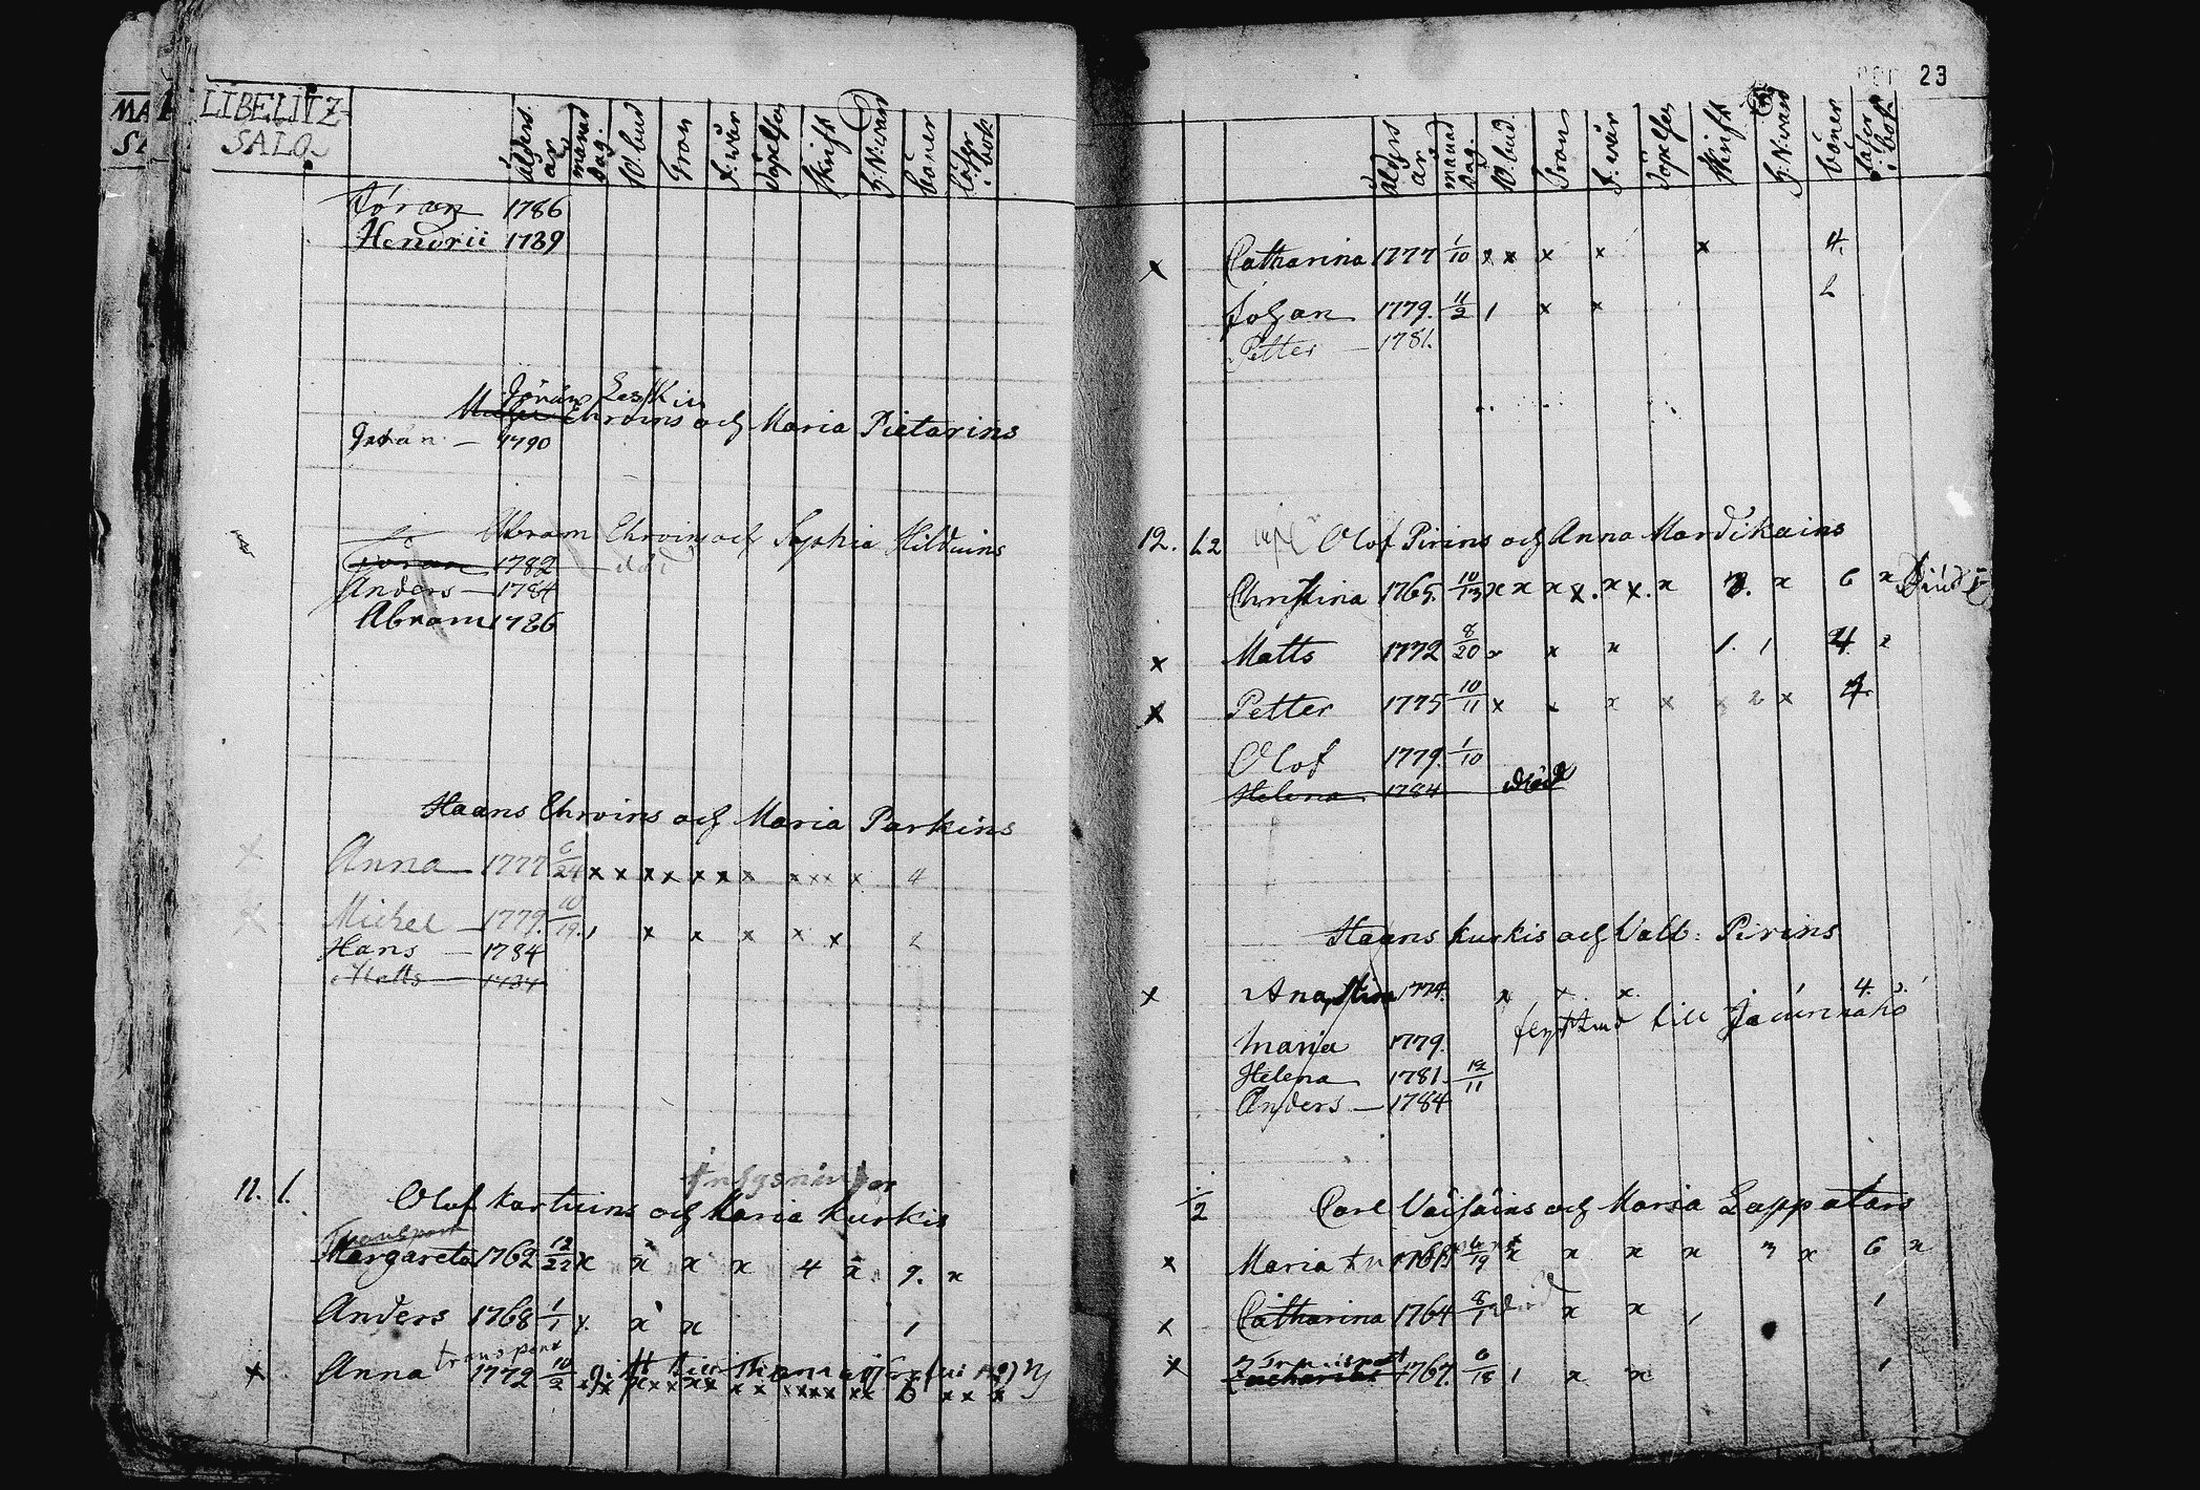 LIBELITZ
SALO
Ålders år
månad dag.
W. bud
Tron
F: wår
Döpelsen
Skrift
H: N: ward
böner
läser i bok
Jöran 1786
Hendrii 1789
Jöran Leskin
Ehrvins och Maria Pietarins
Jöran — 1790
Abram Ehrvins och Sophia Hilduins
Jöran 1782 död
Anders — 1784
Abram 1786
Haans Ehrvins och Maria Parkins
Anna — 1777 6/24 x x x x x x x x x x x 4
Michel — 1779. 10/19. 1 x x x x x 2
Hans — 1784
Matts — 1784
11. 1.
Olof Kartuins och Maria Kurkis
Transport
Margareta 1762 12/22 x x x x 4 x 9. x
Anders 1768 1/1 x. x x 1
transport
Anna 1772 10/2
23
Ålders år
månad dag.
W. bud.
Tron
F: wår
Döpelsen
Skrift
H: N: ward
böner
läser i bok
x Catharina 1777 1/10 x x x x x 4.
Johan 1779. 11/2 1 x x 2
Petter — 1781.
12. 12 Olof Pirins och Anna Mardikains
Christina 1765. 10/13 x x x x. x x. x 3. x 6 x
x Matts 1772 8/20 x x x 1. 1 4 2
x Petter 1775 10/11 x x x x x 2 x 4.
Olof 1779. 1/10
Helena 1784 död
Haans Kurkis och Valb: Pirins
x Ana Stina 1774. x x. x. 4.
flyttad till
Maria 1779.
Helena 1781. 12/11
Anders — 1784
1/2 Carl Väisäins och Maria Lappatars
x Maria 6/19 x x x x 3 x 6 x
x Catharina 1764 8/1 död x x 1 1
transport
x Zacharias 1767. 6/18 1 x x 1